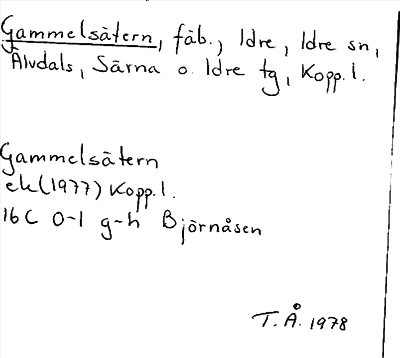 Gammelsätern, fäb., Idre, Idre sn,
Älvdals, Särna o. Idre tg, Kopp. l.
Gammelsätern
ek (1977) Kopp. l.
16C 0-1 g-h Björnåsen
T. Å. 1978